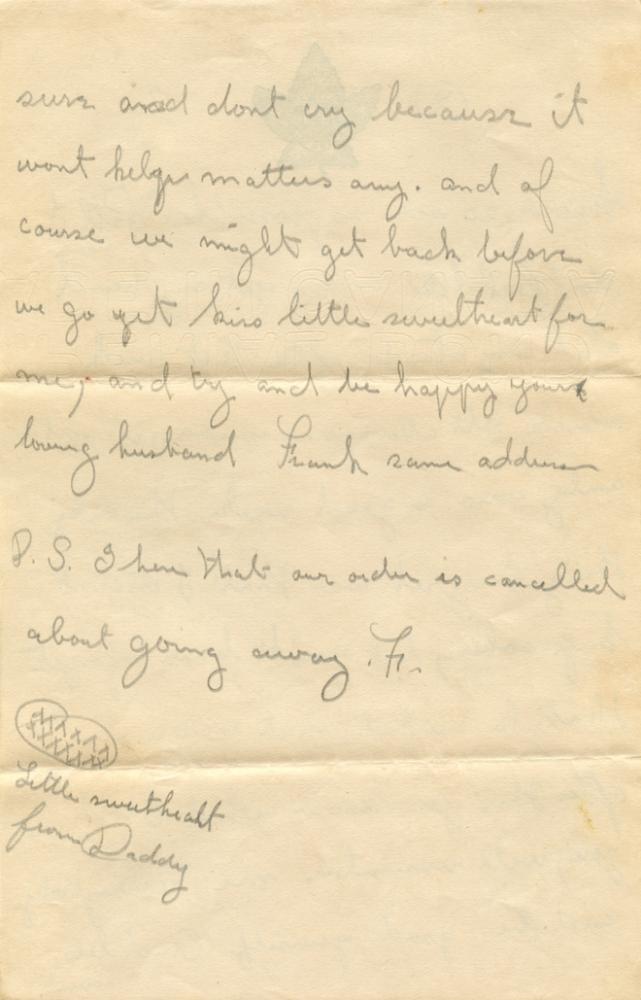 sure and dont cry because it
wont help matters any. and of
course we might get back before
we go yet kiss little sweetheart for
me, and try and be happy yours
loving husband Frank same address
P.S. I here that our order is cancelled
about going away. Fr.
xxxxx
xxxxxx
Little sweetheart
from Daddy